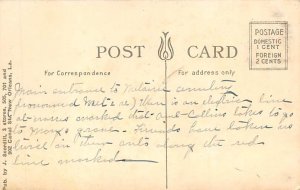 POST CARD
POSTAGE
DOMESTIC
1 CENT
FOREIGN
2 CENTS
For Correspondence
For address only
Main entrance to Metairie cemetery
(pronounced Met a re) There is an electric line
at cross marked that Aunt Collins takes to go
to Mary's grave. Friends have taken us
in their auto along the red
line marked
Pub. by J. Scordill 3 stores, 500, 701 and
902 Canal St. New Orleans, La.